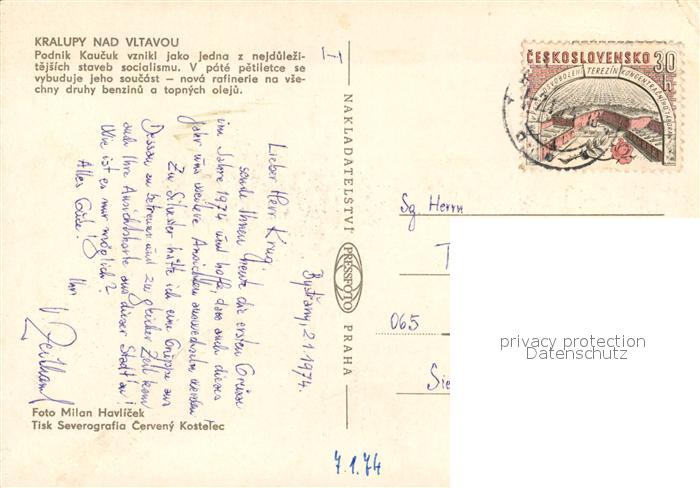 KRALUPY NAD VLTAVOU
Podnik Kaučuk vznikl jako jedna z nejdůleži-
tějších staveb socialismu. V páté pětiletce se
vybuduje jeho součást – nová rafinerie na vše-
chny druhy benzinů a topných olejů.
I
ČESKOSLOVENSKO 30
h
OSVOBOZENÍ TEREZÍN KONCENTRAČNÍHO TÁBORA
Bystřany, 2.1.1974.
Lieber Herr Krug!
sende Ihnen heute die ersten Grüsse
im Jahre 1974 und hoffe, dass auch dieses
Jahr uns weitere Ansichten auswechseln werden.
Zu Silvester hatte ich eine Gruppe aus
Dessau zu betreuen und zu gleicher Zeit kam
auch Ihre Ansichtskarte aus dieser Stadt an!
Wie ist es nur möglich?
Alles Gute!
Ihr
NAKLADATELSTVÍ PRESSFOTO PRAHA
Sg Herrn
T
065
Sie
privacy protection
Datenschutz
Foto Milan Havlíček
Tisk Severografia Červený Kostelec
7.1.74